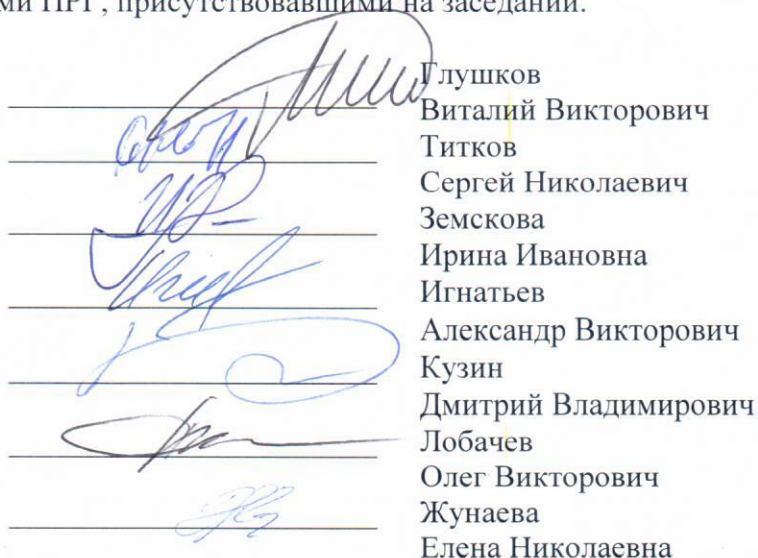 ми ПРГ, присутствовавшими на заседании.
Глушков
Виталий Викторович
Титков
Сергей Николаевич
Земскова
Ирина Ивановна
Игнатьев
Александр Викторович
Кузин
Дмитрий Владимирович
Лобачев
Олег Викторович
Жунаева
Елена Николаевна